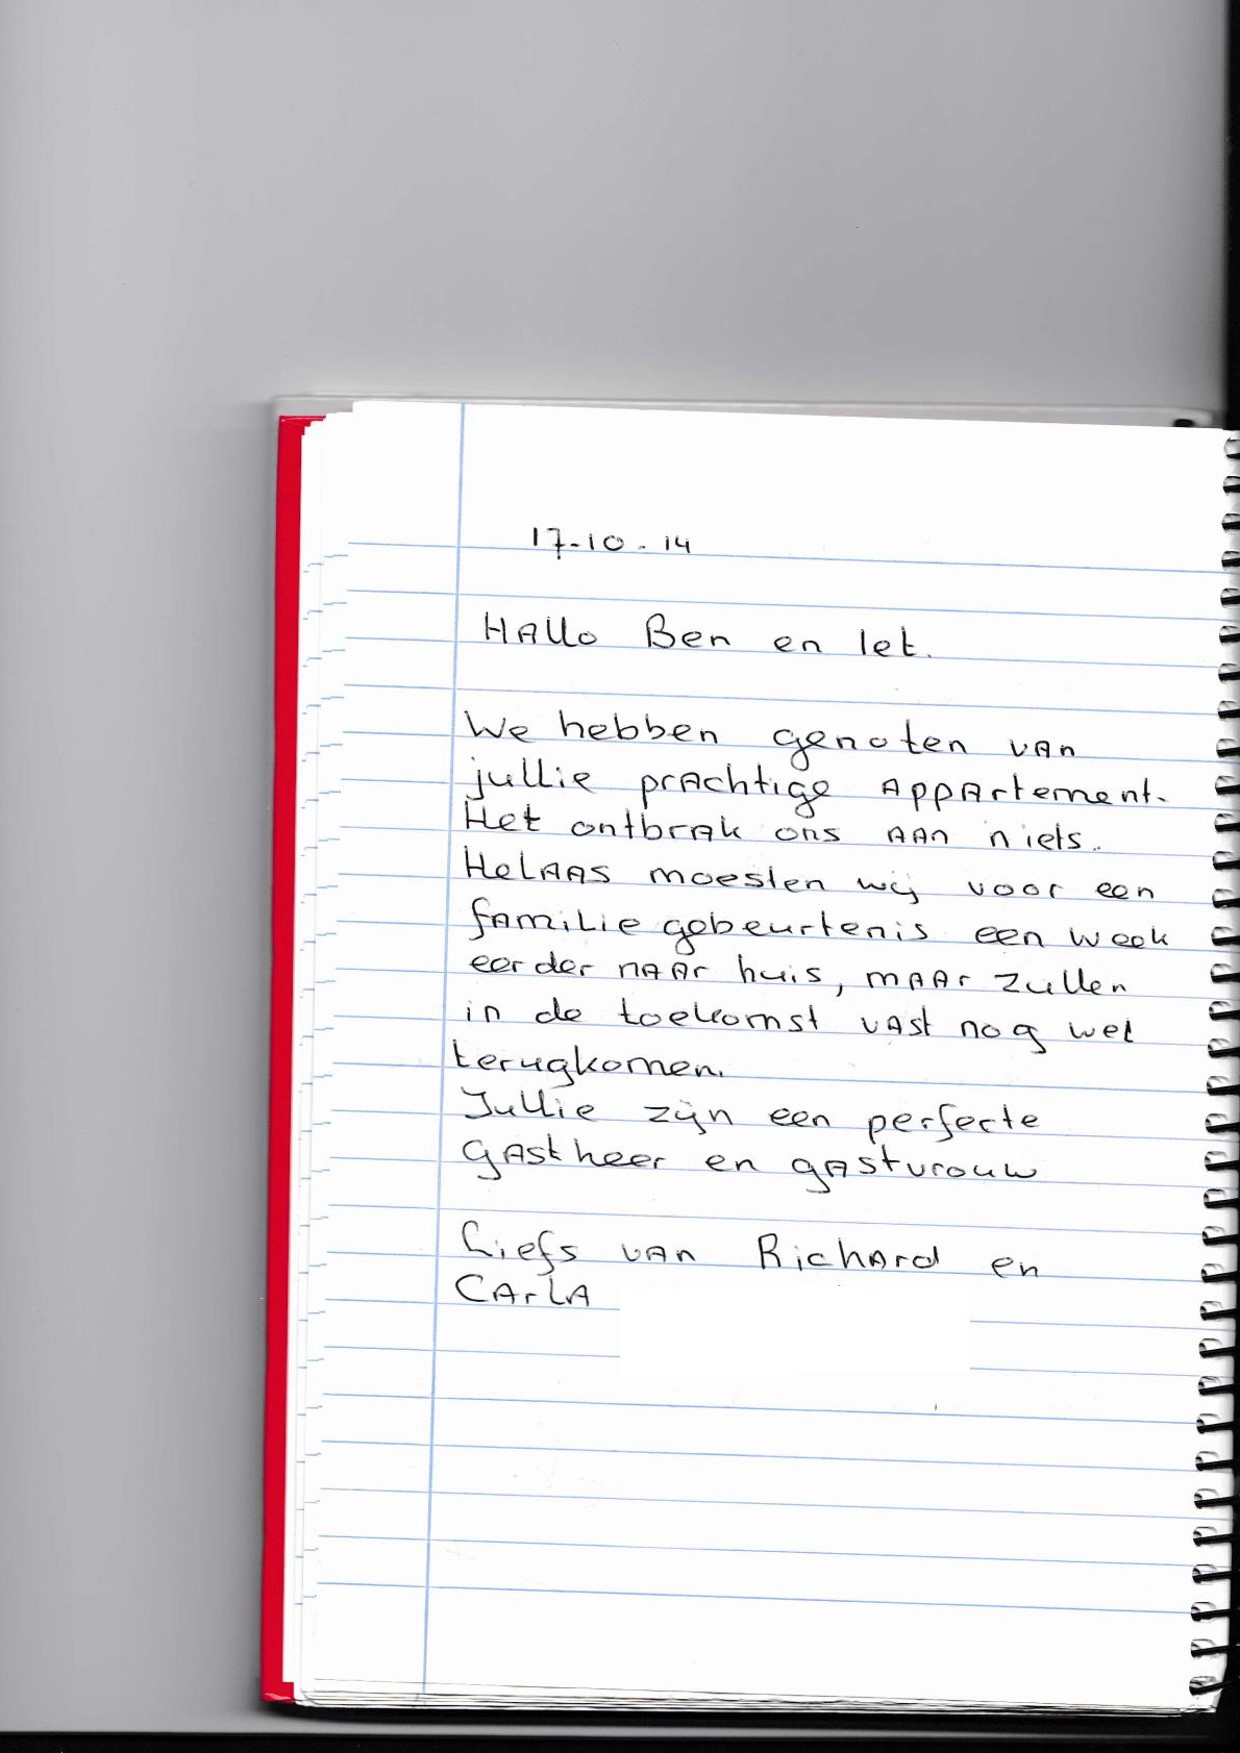 17-10-14
Hallo Ben en Iet.
We hebben genoten van
jullie prachtige appartement.
Het ontbrak ons aan niets.
Helaas moesten wij voor een
familie gebeurtenis een week
eerder naar huis, maar zullen
in de toekomst vast nog wel
terugkomen.
Jullie zijn een perfecte
gastheer en gastvrouw
Liefs van Richard en
Carla